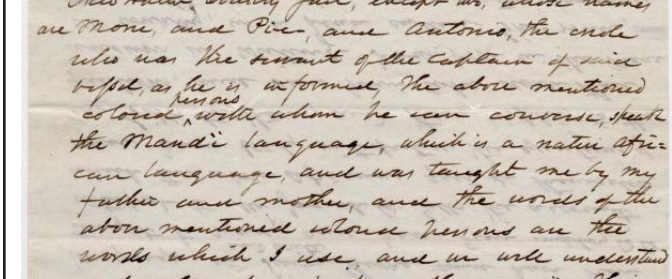 New Haven County Jail, except two, whose names
are Mone, and Pie, and Antonio, the creole
who was the servant of the Captain of said
vessel, as he is informed, the above mentioned
colored persons with whom he can converse, speak
the Mandi language, which is a native Afri=
can language, and was taught me by my
father and mother, and the words of the
above mentioned colored persons are the
words which I use, and we well understand